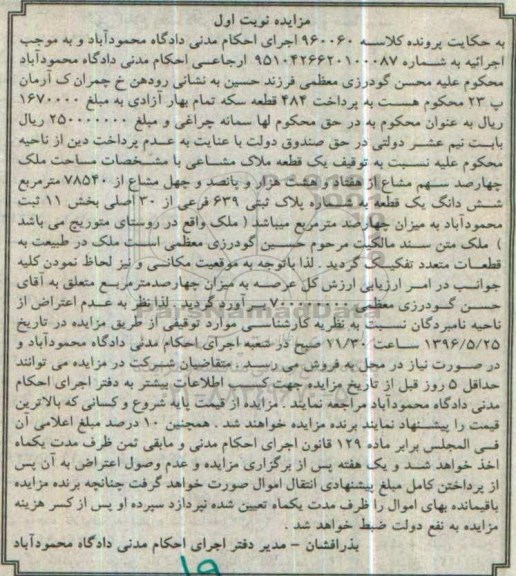 مزایده نوبت اول
به حکایت پرونده کلاسه ۹۶۰۰۶۰ اجرای احکام مدنی دادگاه محمودآباد و به موجب
اجرائیه به شماره ۹۵۱۰۴۲۶۶۲۰۱۰۰۰۸۷ ارجاعی احکام مدنی دادگاه محمودآباد
محکوم علیه محسن گودرزی معظمی فرزند حسین به نشانی رودهن خ چمران ک آرمان
پ ۲۳ محکوم هست به پرداخت ۴۸۴ قطعه سکه تمام بهار آزادی به مبلغ ۱۶۷۰۰۰۰
ریال به عنوان محکوم به در حق محکوم لها سمانه چراغی و مبلغ ۲۵۰۰۰۰۰۰۰ ریال
بابت نیم عشر دولتی در حق صندوق دولت با عنایت به عدم پرداخت دین از ناحیه
محکوم علیه نسبت به توقیف یک قطعه ملاک مشاعی با مشخصات مساحت ملک
چهارصد سهم مشاع از هفتاد و هشت هزار و پانصد و چهل مشاع از ۷۸۵۴۰ مترمربع
شش دانگ یک قطعه به شماره پلاک ثبتی ۶۳۹ فرعی از ۳۰ اصلی بخش ۱۱ ثبت
محمودآباد به میزان چهارصد مترمربع میباشد ( ملک واقع در روستای متوریج می باشد
) ملک متن سند مالکیت مرحوم حسین گودرزی معظمی است ملک در طبیعت به
قطعات متعدد تفکیک گردید . لذا باتوجه به موقعیت مکانی و نیز لحاظ نمودن کلیه
جوانب در امر ارزیابی ارزش کل عرصه به میزان چهارصدمترمربع متعلق به آقای
حسن گودرزی معظمی برآورد گردید . لذا نظر به عدم اعتراض از
ناحیه نامبردگان نسبت به نظریه کارشناسی موارد توقیفی از طریق مزایده در تاریخ
۱۳۹۶/۵/۲۵ ساعت ۱۱/۳۰ صبح در شعبه اجرای احکام مدنی دادگاه محمودآباد و
در صورت نیاز در محل به فروش می رسد . متقاضیان شرکت در مزایده می توانند
حداقل ۵ روز قبل از تاریخ مزایده جهت کسب اطلاعات بیشتر به دفتر اجرای احکام
مدنی دادگاه محمودآباد مراجعه نمایند . مزایده از قیمت پایه شروع و کسانی که بالاترین
قیمت را پیشنهاد نمایند برنده مزایده خواهند شد . همچنین ۱۰ درصد مبلغ اعلامی آن
فی المجلس برابر ماده ۱۲۹ قانون اجرای احکام مدنی و مابقی ثمن ظرف مدت یکماه
اخذ خواهد شد و یک هفته پس از برگزاری مزایده و عدم وصول اعتراض به آن پس
از پرداختن کامل مبلغ پیشنهادی انتقال اموال صورت خواهد گرفت چنانچه برنده مزایده
باقیمانده بهای اموال را ظرف مدت یکماه تعیین شده نپردازد سپرده او پس از کسر هزینه
مزایده به نفع دولت ضبط خواهد شد .
بذرافشان – مدیر دفتر اجرای احکام مدنی دادگاه محمودآباد
۱۹